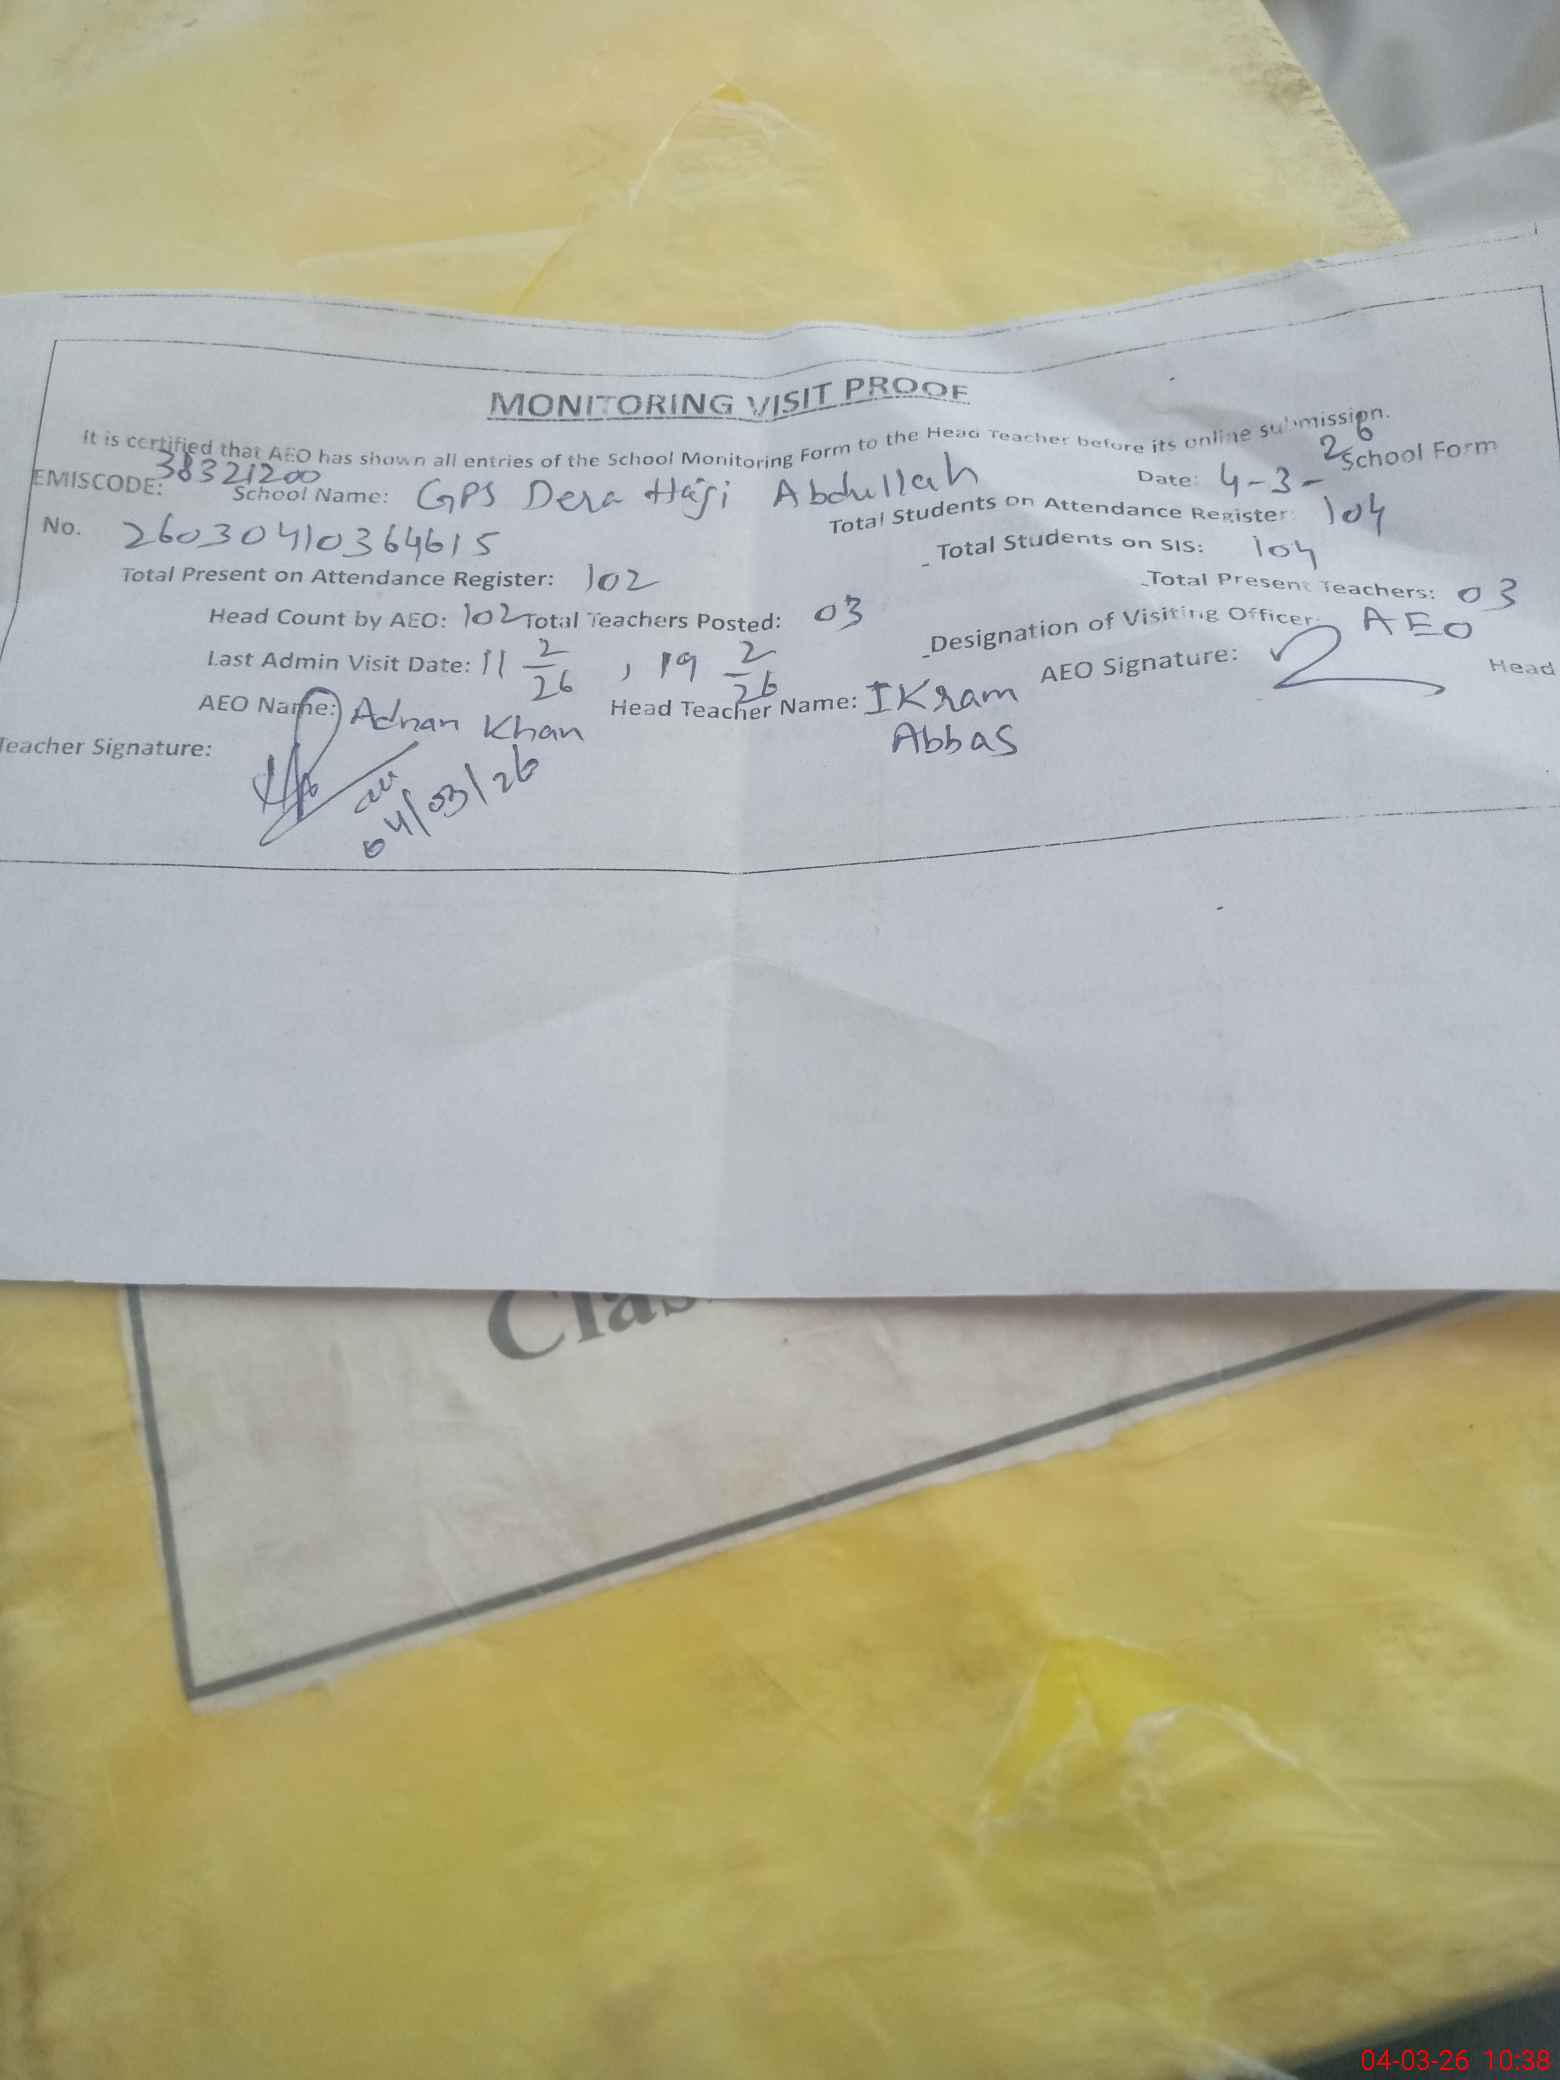 MONITORING VISIT PROOF
It is certified that AEO has shown all entries of the School Monitoring Form to the Head Teacher before its online submission.
EMISCODE: 38321200 School Name: GPS Dera Haji Abdullah Date: 4-3-26 School Form
No. 26030410364615 Total Students on Attendance Register: 104
Total Students on SIS: 104
Total Present on Attendance Register: 102 Total Present Teachers: 03
Head Count by AEO: 102 Total Teachers Posted: 03 Designation of Visiting Officer: AEO
Last Admin Visit Date: 11 2/26 , 19 2/26 AEO Signature: Head
AEO Name: Adnan Khan Head Teacher Name: IKram
Abbas
Teacher Signature:
04/03/26
Clas
04-03-26 10:38